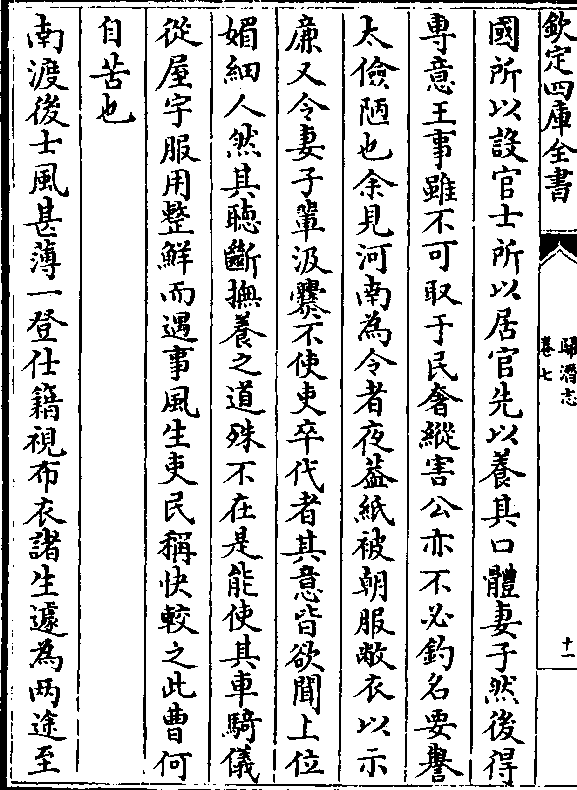 欽定四庫全書
歸潛志
卷七
十一
國所以設官士所以居官先以養其口體妻子然後得
專意王事雖不可取于民奢縱害公亦不必釣名要譽
太儉陋也余見河南為令者夜葢紙被朝服敝衣以示
廉又令妻子輩汲爨不使吏卒代者其意皆欲聞上位
媚細人然其聽斷撫養之道殊不在是能使其車騎儀
從屋宇服用整鮮而遇事風生吏民稱快較之此曹何
自苦也
南渡後士風甚薄一登仕籍視布衣諸生遽為兩途至